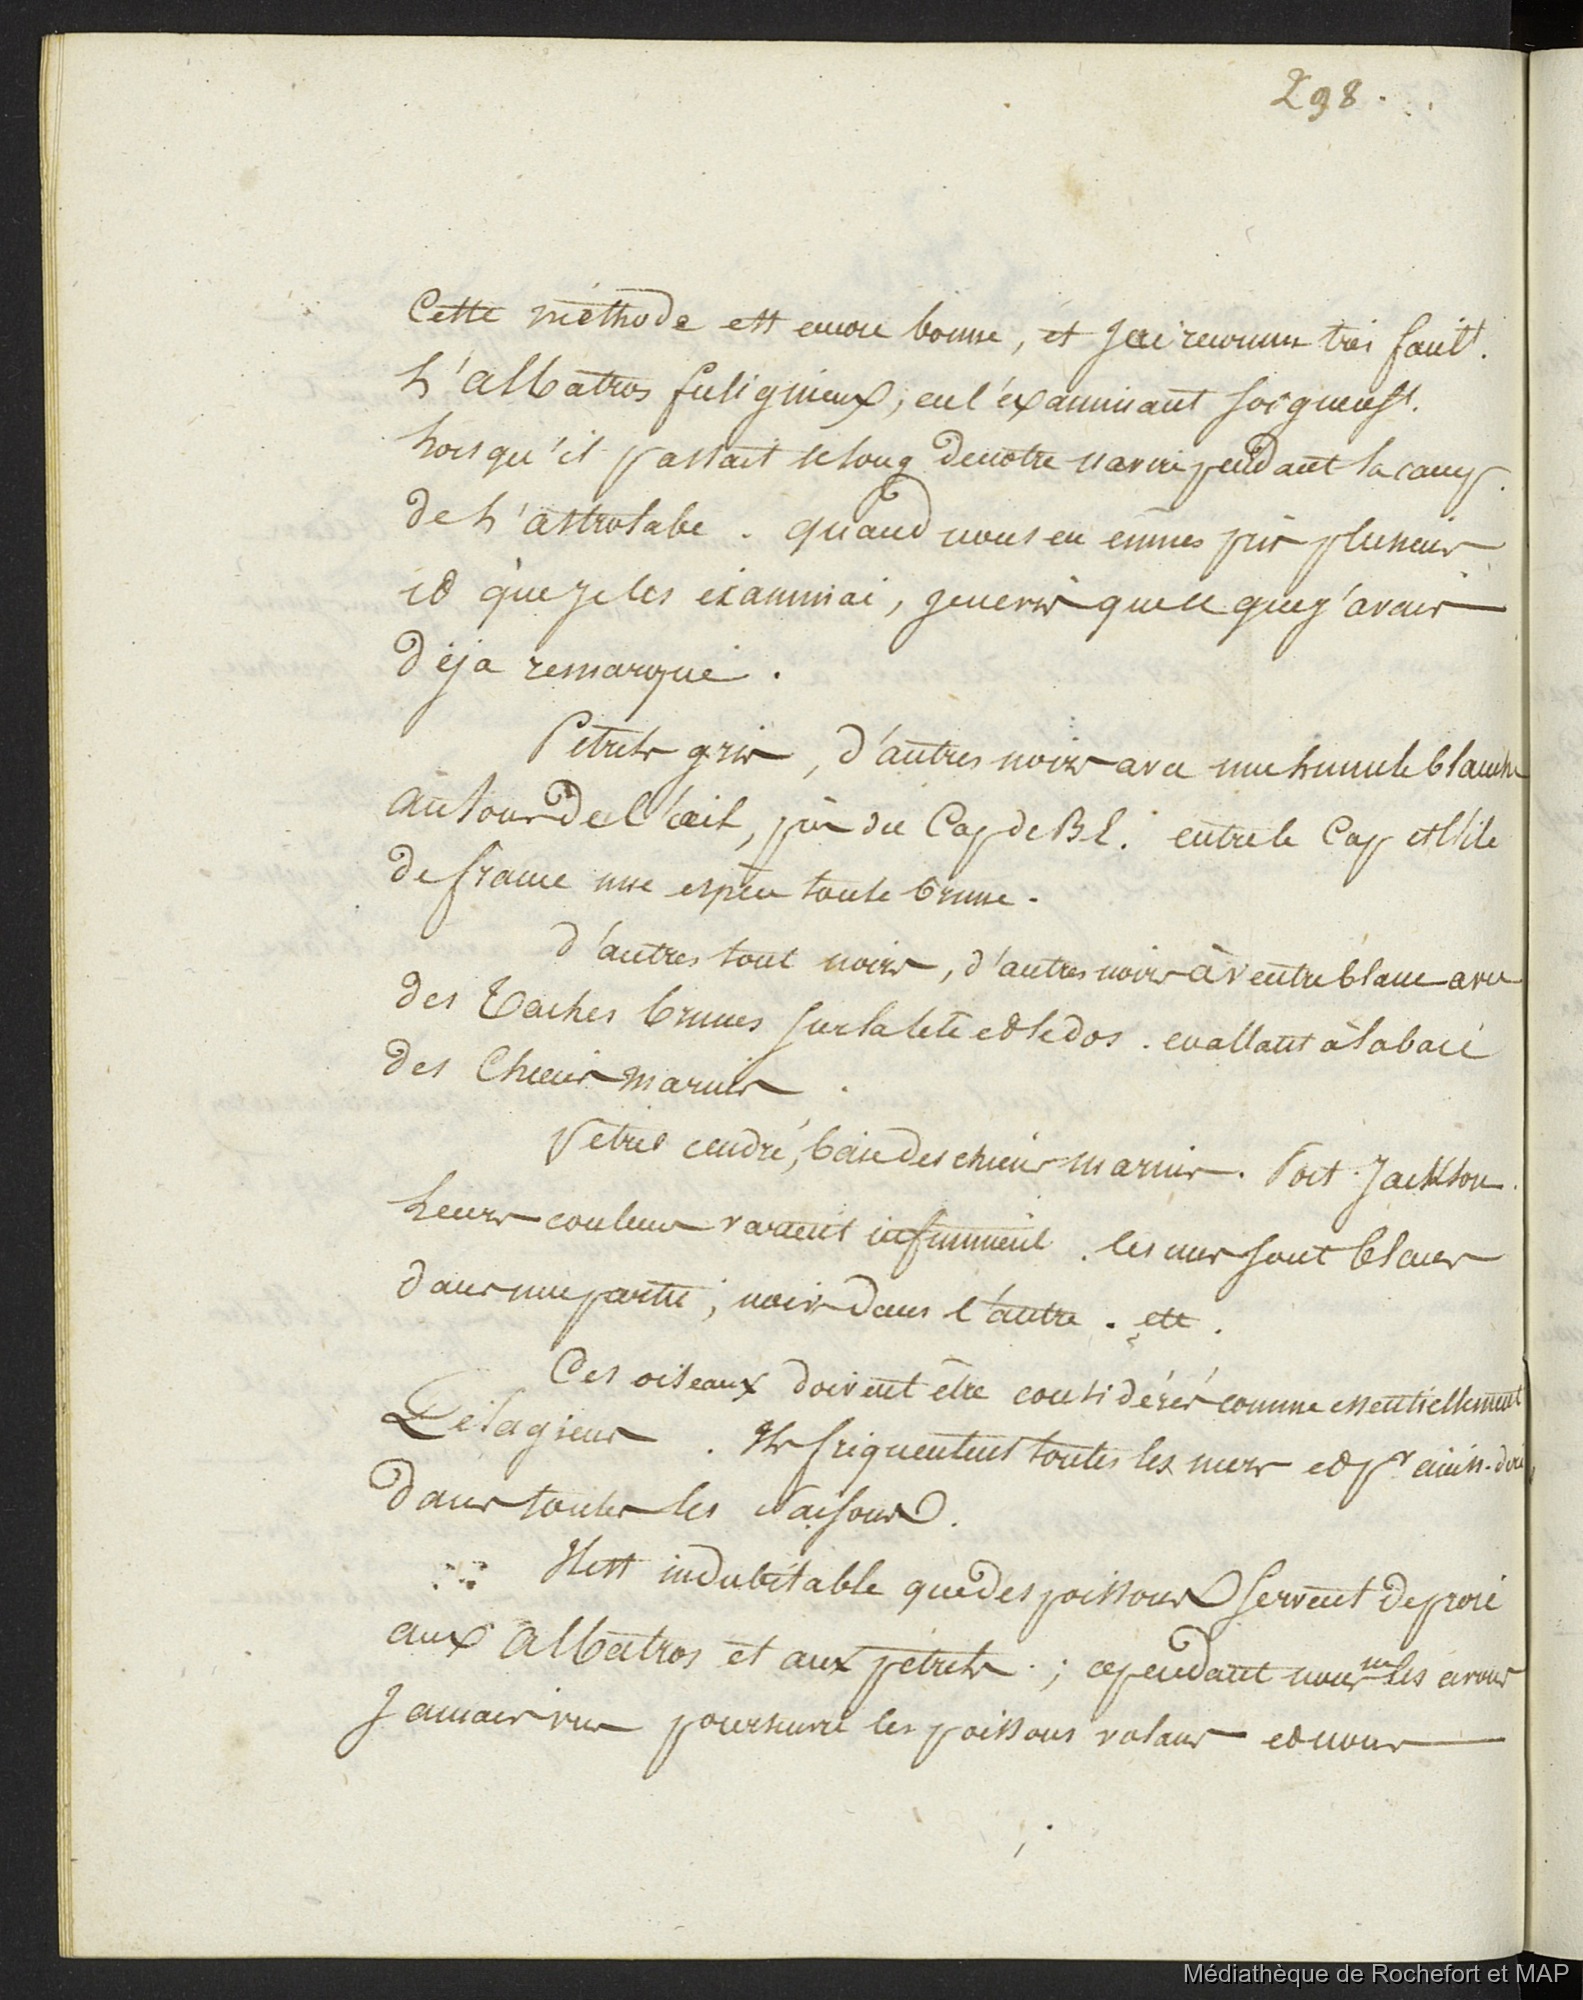 298.
Cette méthode est encore bonne, et j'ai reconnu très facilt.
L'albatros fuligineux, en l'éxaminant soigneust.
lorsqu'il passait le long de notre navire pendant la camp.
de L'astrolabe. quand nous en eumes pris plusieurs
et que je les examinai, je ne vis que ce que j'avais
déja remarqué.
Pétrels gris, d'autres noirs avec une lunule blanche
autour de l'œil, près du Cap de B. E. entre le Cap et l'ile
de france une espèce toute brune.
d'autres tout noirs, d'autres noirs à ventre blanc avec
des taches brunes sur la tête et le dos. en allant à la baie
des Chiens marins.
Pétrel cendré, baie des chiens marins. Port Jackson.
Leurs couleurs varient infiniment. les uns sont blancs
dans une partie, noirs dans l'autre. etc.
Ces oiseaux doivent être considérés comme essentiellement
Pélagiens. Ils fréquentent toutes les mers et pr ainsi dire
dans toutes les saisons.
Il est indubitable que des poissons servent de proie
aux albatros et aux pétrels; cependant nous ne les avons
jamais vus poursuivre les poissons volans et nous
Médiathèque de Rochefort et MAP